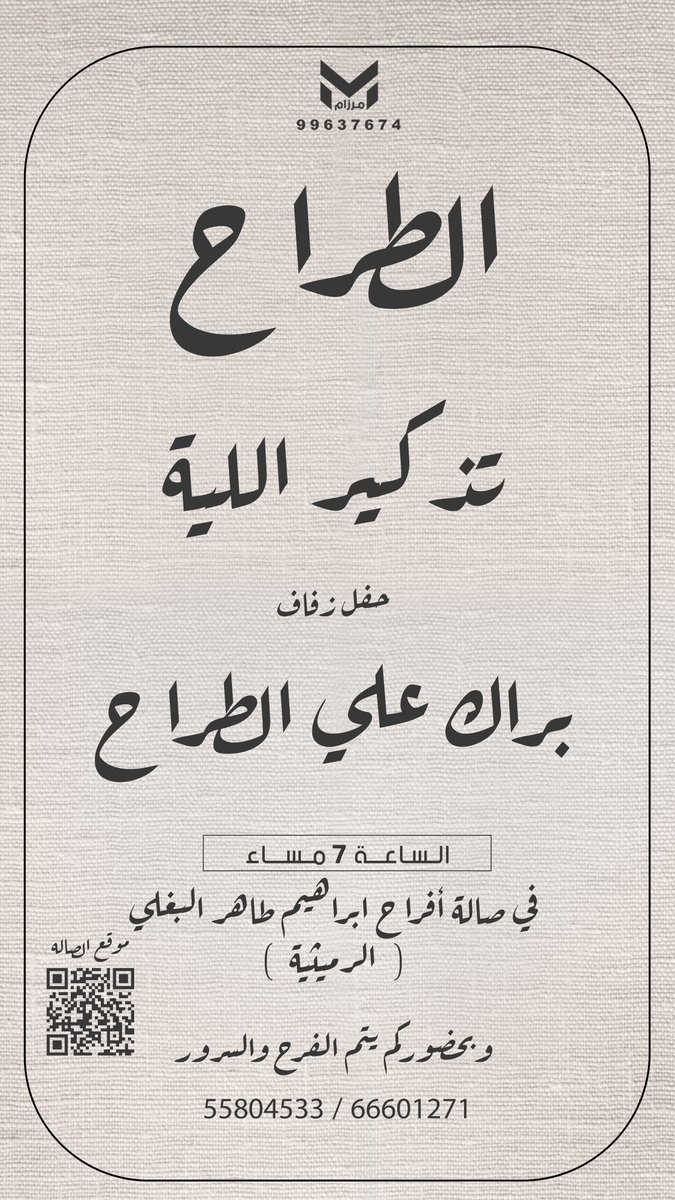 مرزام
99637674
الطراح
تذكير الليلة
حفل زفاف
براك علي الطراح
الساعة 7 مساء
في صالة أفراح ابراهيم طاهر البغلي
( الرميثية )
موقع الصاله
و بحضوركم يتم الفرح والسرور
55804533 / 66601271